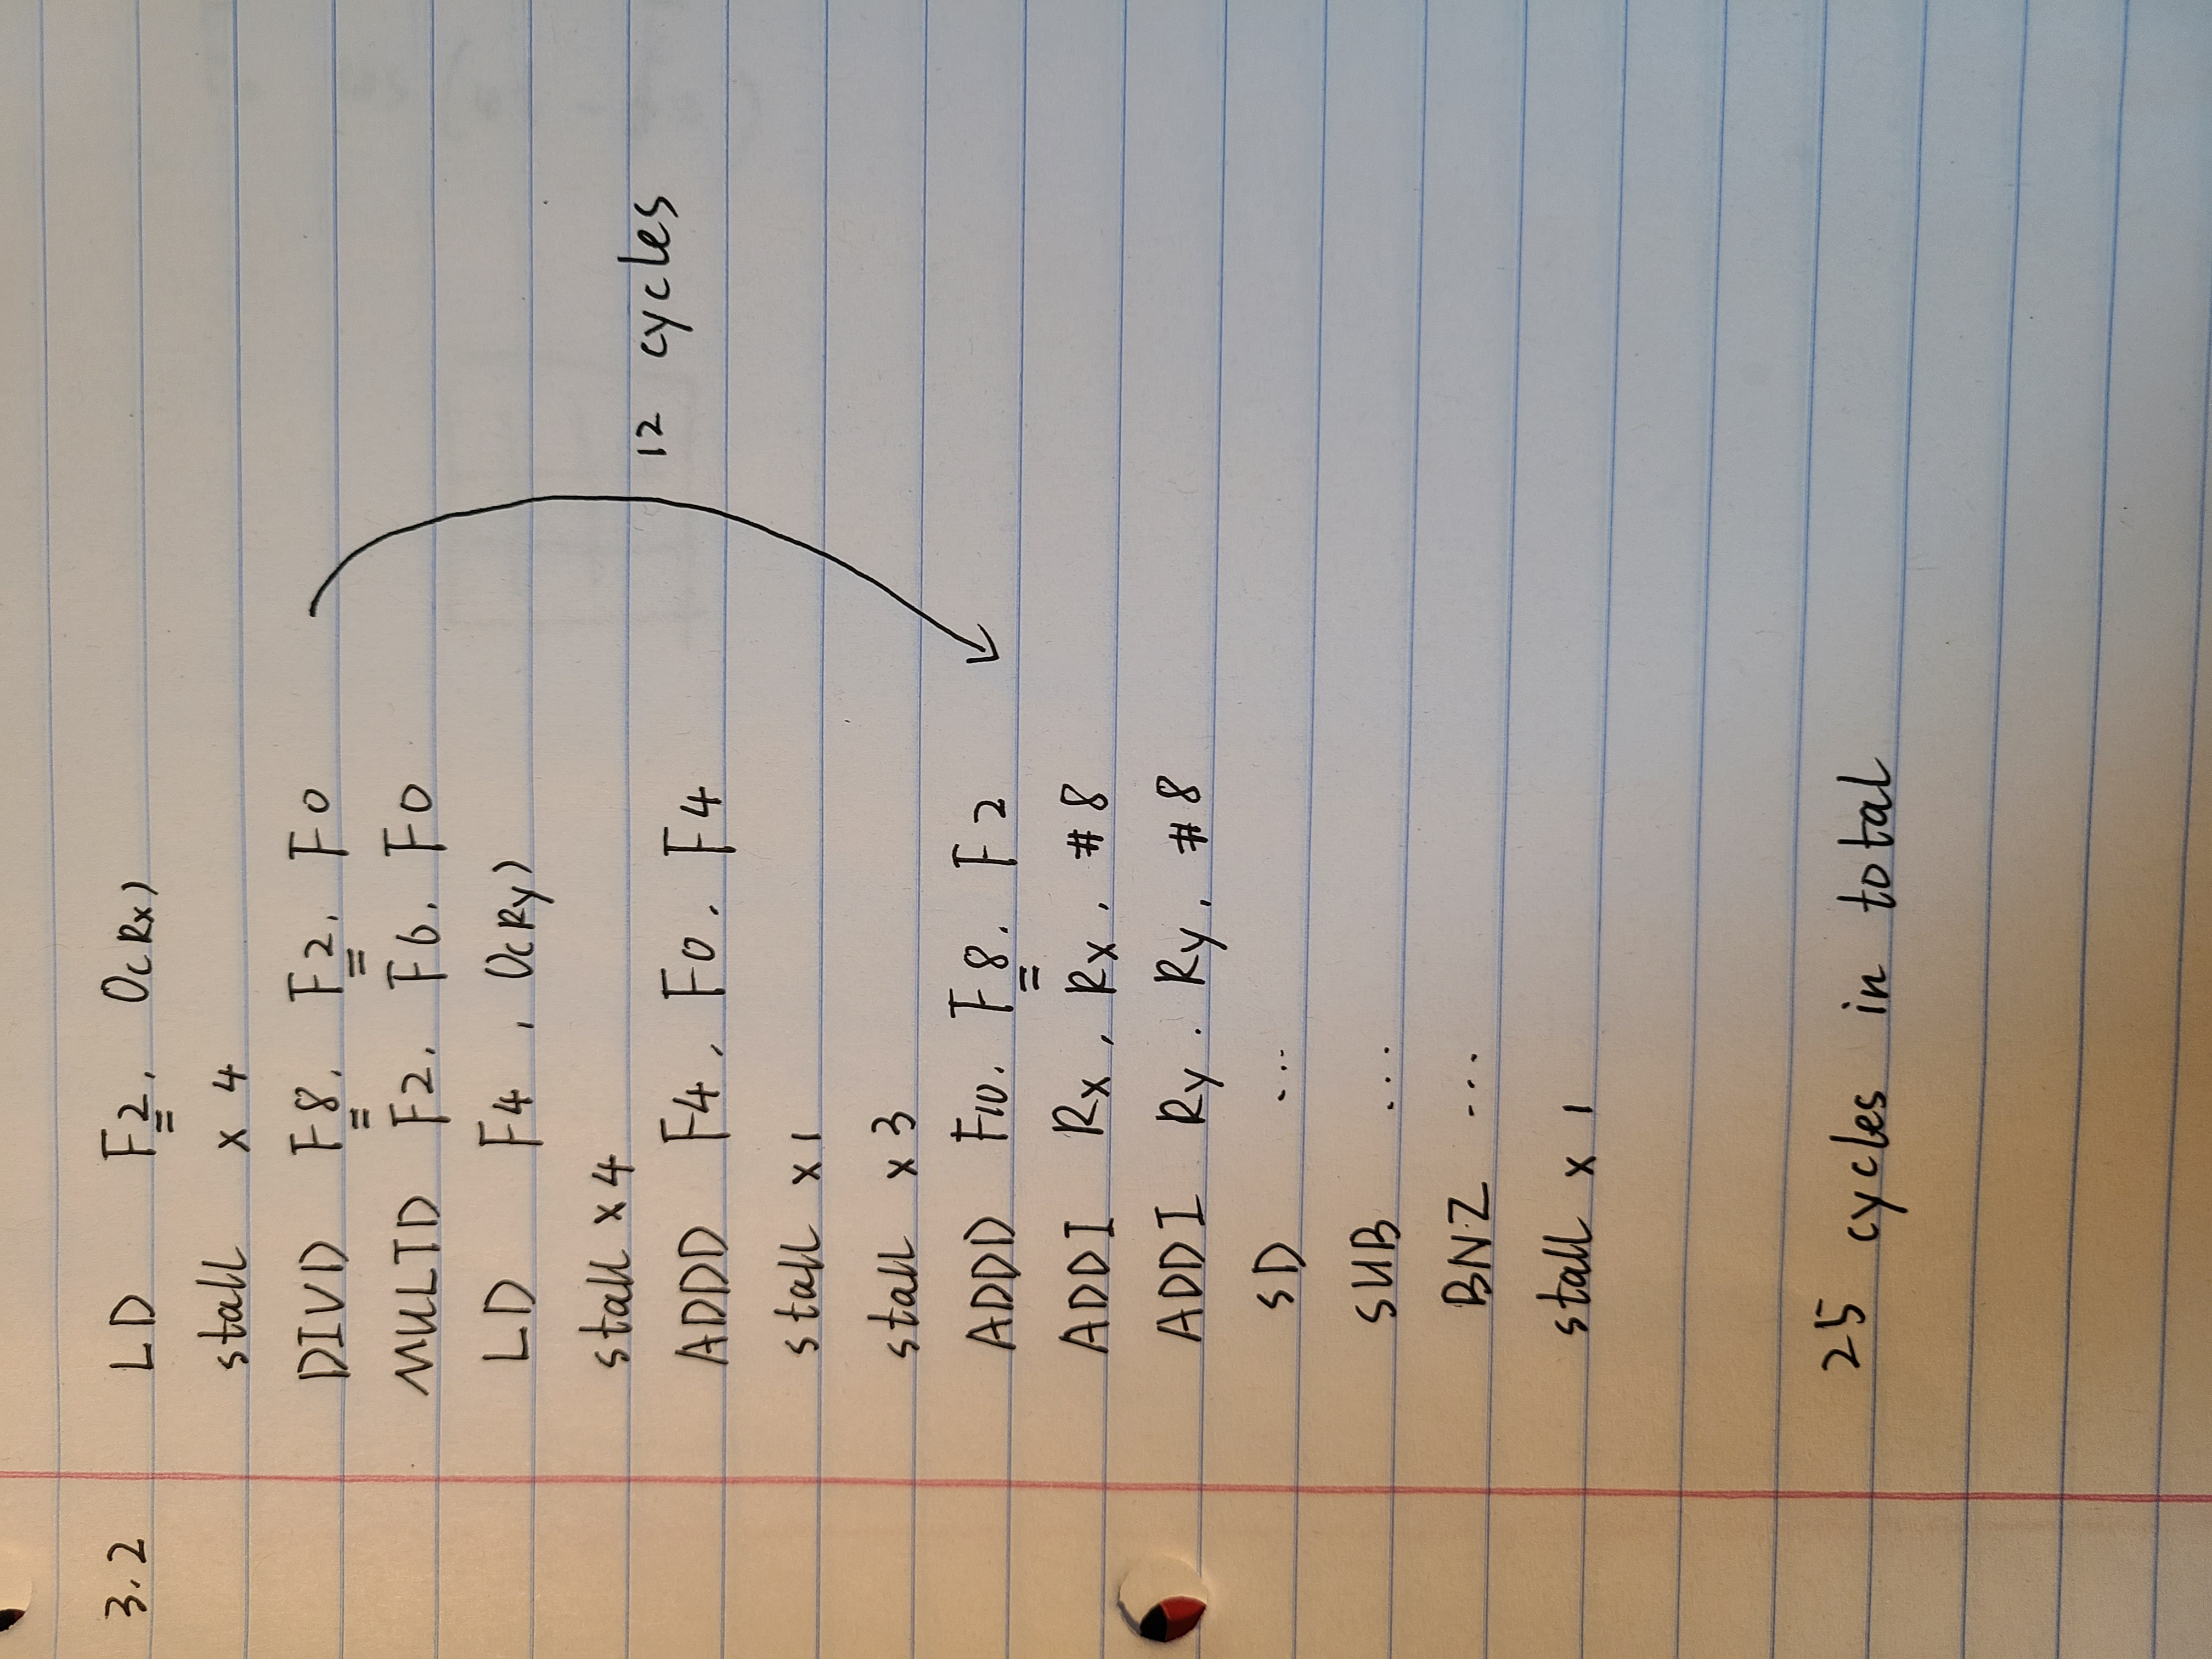 3.2 LD F2, 0(Rx)
stall x 4
DIVD F8, F2, F0
MULTD F2, F6, F0
LD F4, 0(Ry)
stall x 4
12 cycles
ADDD F4, F0, F4
stall x 1
stall x 3
ADDD F10, F8, F2
ADDI Rx, Rx, #8
ADDI Ry, Ry, #8
SD ...
SUB ...
BNZ ...
stall x 1
25 cycles in total